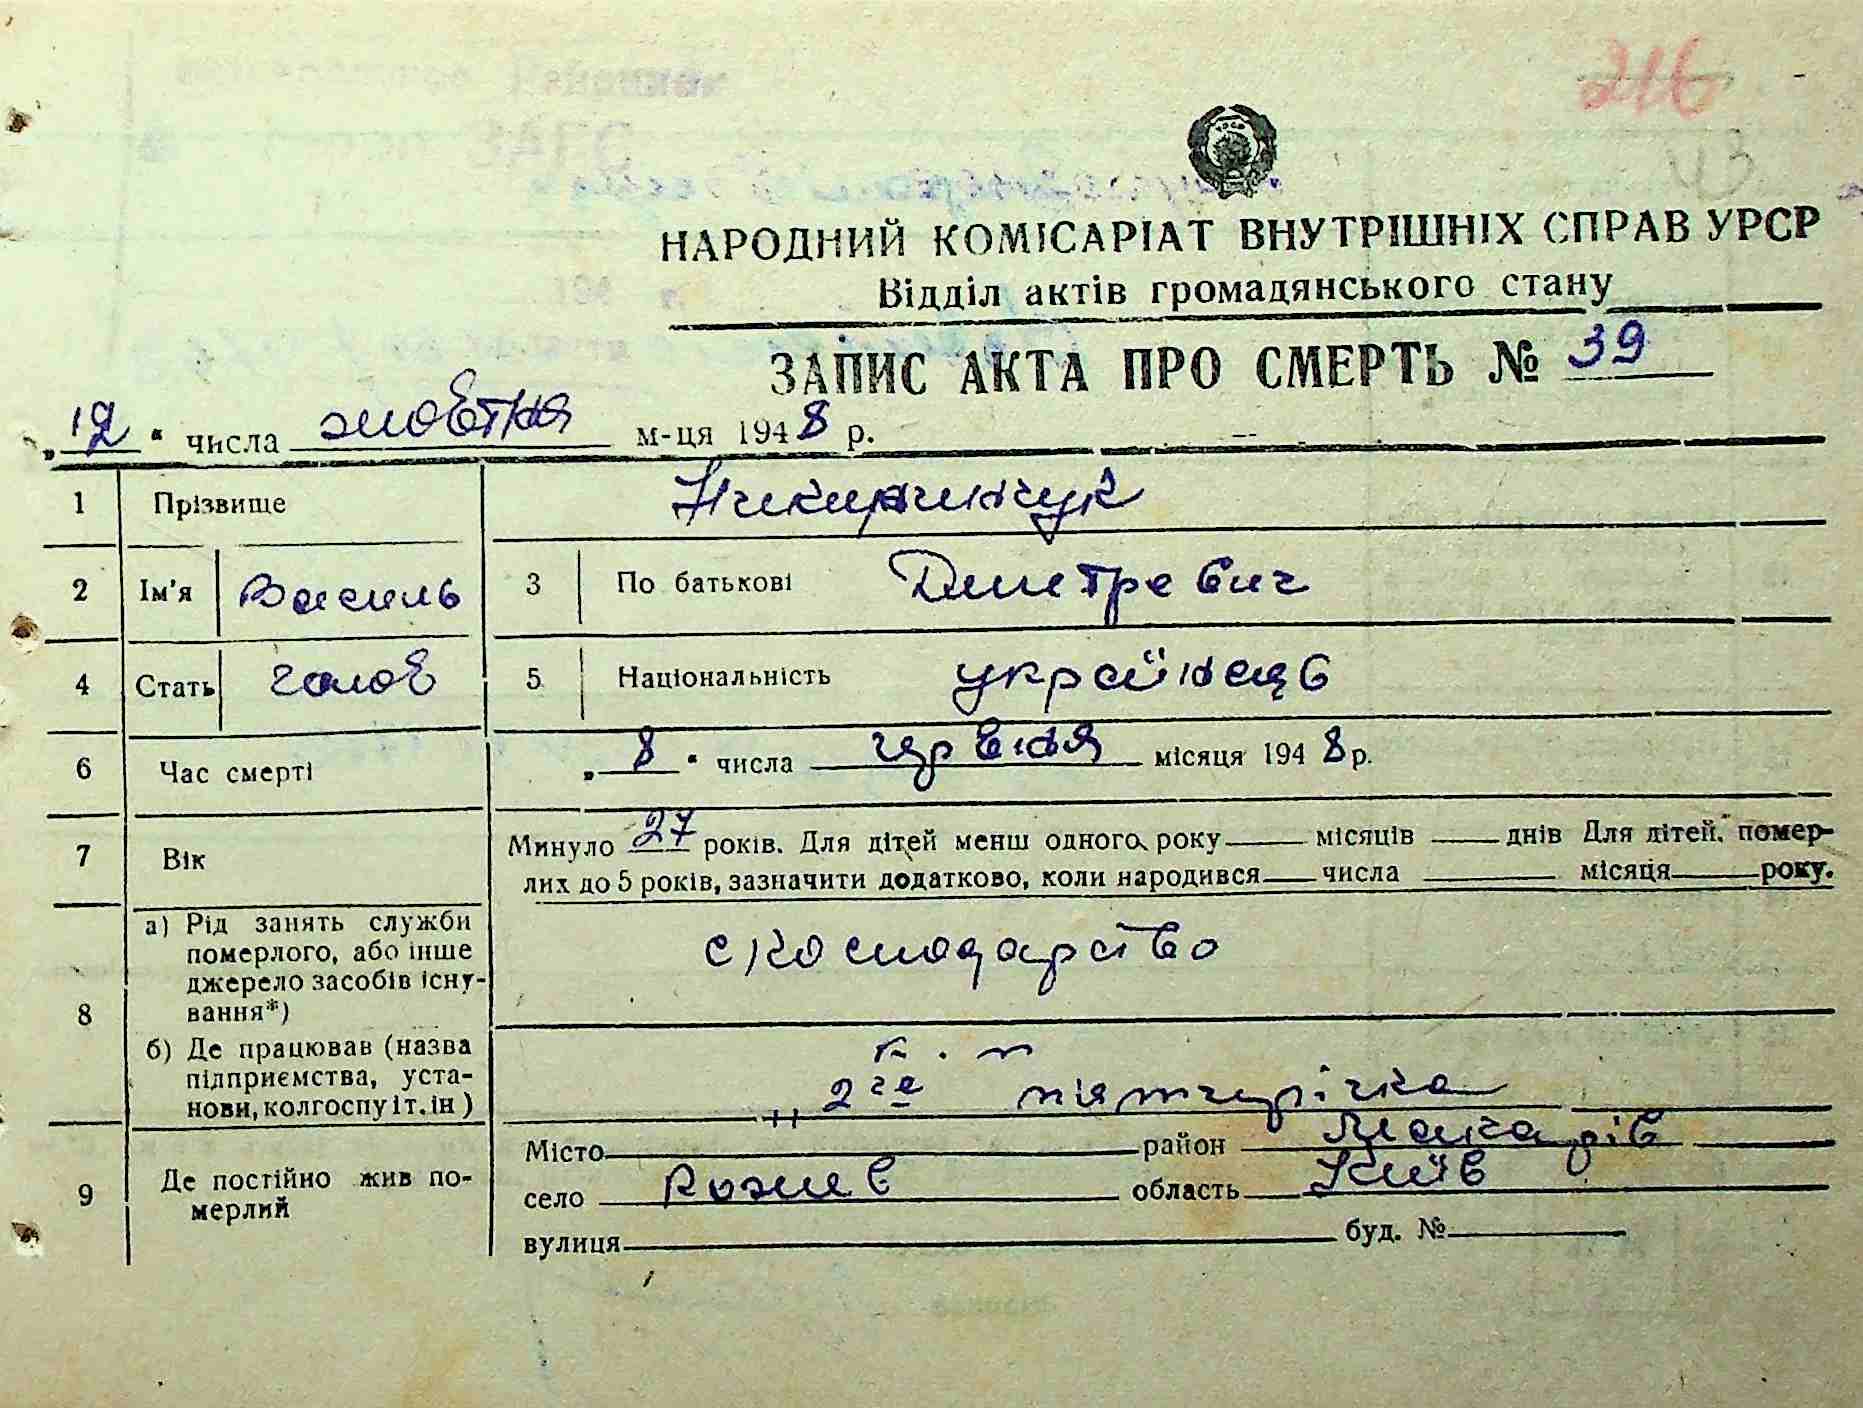 216
43
НАРОДНИЙ КОМІСАРІАТ ВНУТРІШНІХ СПРАВ УРСР
Відділ актів громадянського стану
ЗАПИС АКТА ПРО СМЕРТЬ № 39
„12“ числа жовтня м-ця 1948 р.
1 Прізвище
2 Ім'я Василь 3 По батькові Дмитревич
4 Стать чолов 5 Національність українець
6 Час смерті „8“ числа червня місяця 1948 р.
7 Вік Минуло 27 років. Для дітей менш одного року місяців днів Для дітей, помер-
лих до 5 років, зазначити додатково, коли народився числа місяця року.
8 а) Рід занять служби
померлого, або інше
джерело засобів існу-
вання*)
с/господарство
б) Де працював (назва
підприємства, уста-
нови, колгоспу і т. ін)
„2га пятирічка
9 Де постійно жив по-
мерлий
Місто район Макарів
село Рожев область Київ
вулиця буд. №